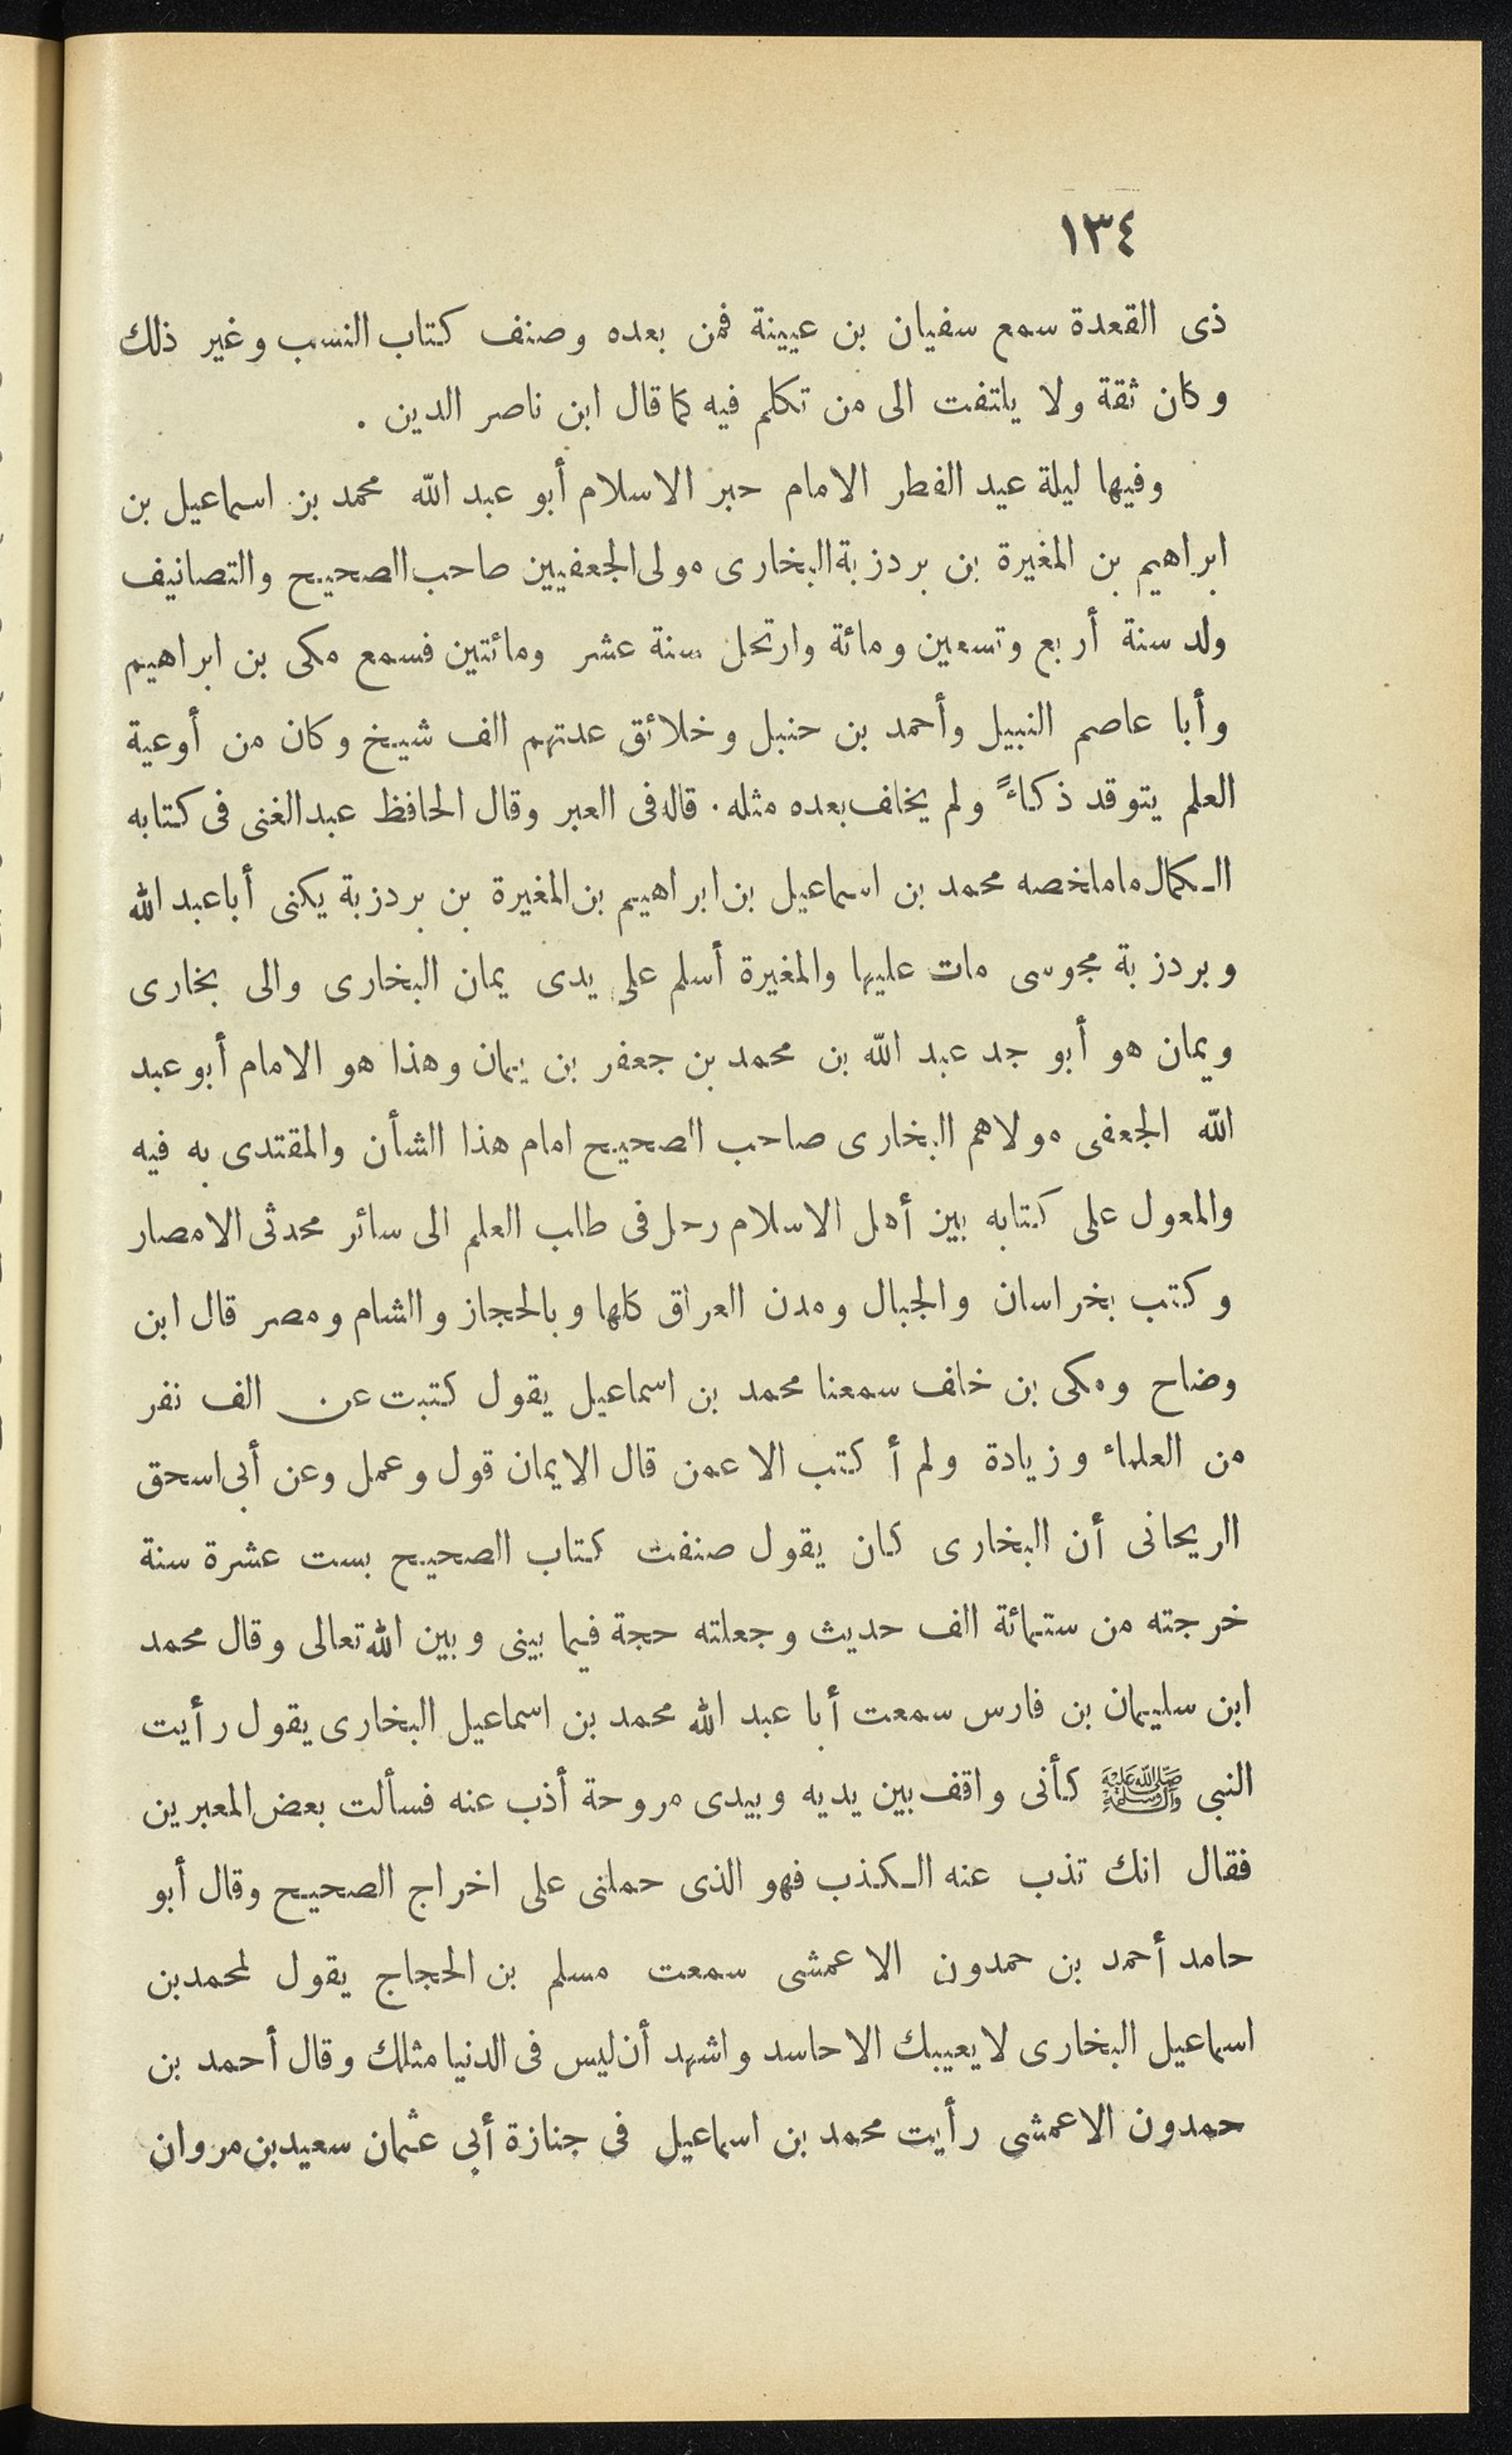 ١٣٤
ذى القعدة سمع سفيان بن عيينة فمن بعده وصنف كتاب النسب وغير ذلك
وكان ثقة ولا يلتفت الى من تكلم فيه كما قال ابن ناصر الدين .
وفيها ليلة عيد الفطر الامام حبر الاسلام أبو عبد الله محمد بن اسماعيل بن
ابراهيم بن المغيرة بن بردزبة البخارى مولى الجعفيين صاحب الصحيح والتصانيف
ولد سنة أربع وتسعين ومائة وارتحل سنة عشر ومائتين فسمع مكى بن ابراهيم
وأبا عاصم النبيل وأحمد بن حنبل وخلائق عدتهم الف شيخ وكان من أوعية
العلم يتوقد ذكاءً ولم يخلف بعده مثله . قاله فى العبر وقال الحافظ عبدالغنى فى كتابه
الـكمال ماملخصه محمد بن اسماعيل بن ابراهيم بن المغيرة بن بردزبة يكنى أباعبد الله
وبردزبة مجوسى مات عليها والمغيرة أسلم على يدى يمان البخارى والى بخارى
ويمان هو أبو جد عبد الله بن محمد بن جعفر بن يمان وهذا هو الامام أبو عبد
الله الجعفى مولاهم البخارى صاحب الصحيح امام هذا الشأن والمقتدى به فيه
والمعول على كتابه بين أهل الاسلام رحل فى طلب العلم الى سائر محدثى الامصار
وكتب بخراسان والجبال ومدن العراق كلها وبالحجاز والشام ومصر قال ابن
وضاح ومكى بن خلف سمعنا محمد بن اسماعيل يقول كتبت عن الف نفر
من العلماء وزيادة ولم أكتب الا عمن قال الايمان قول وعمل وعن أبى اسحق
الريحانى أن البخارى كان يقول صنفت كتاب الصحيح بست عشرة سنة
خرجته من ستمائة الف حديث وجعلته حجة فيما بينى وبين الله تعالى وقال محمد
ابن سليمان بن فارس سمعت أبا عبد الله محمد بن اسماعيل البخارى يقول رأيت
النبى ﷺ كأنى واقف بين يديه وبيدى مروحة أذب عنه فسألت بعض المعبرين
فقال انك تذب عنه الـكذب فهو الذى حملنى على اخراج الصحيح وقال أبو
حامد أحمد بن حمدون الاعمشى سمعت مسلم بن الحجاج يقول لمحمدبن
اسماعيل البخارى لايعيبك الا حاسد واشهد أن ليس فى الدنيا مثلك وقال أحمد بن
حمدون الاعمشى رأيت محمد بن اسماعيل فى جنازة أبى عثمان سعيدبن مروان